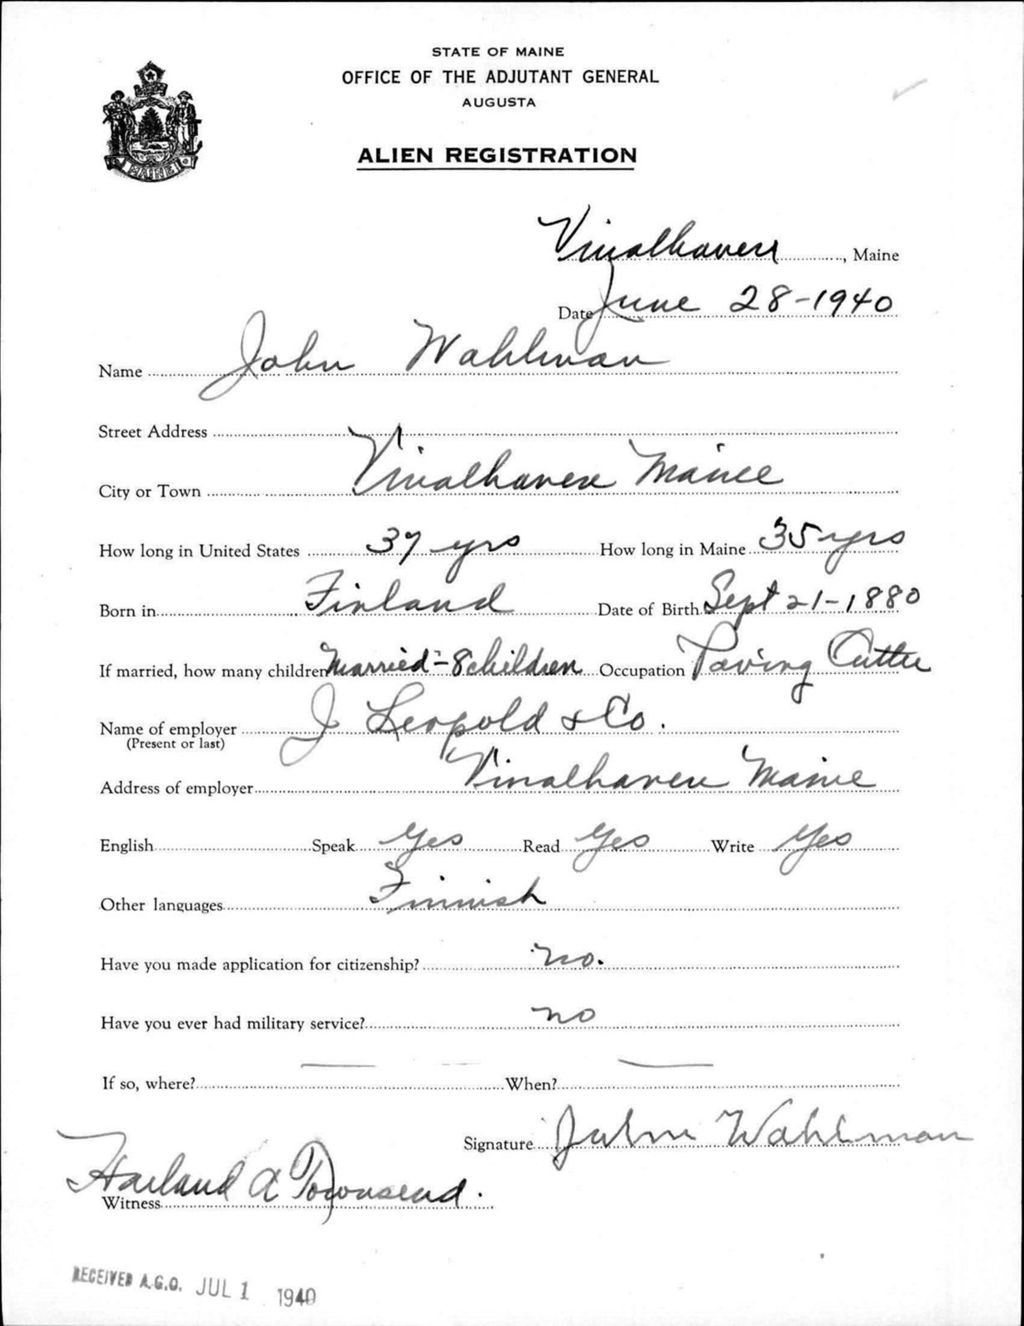 STATE OF MAINE
OFFICE OF THE ADJUTANT GENERAL
AUGUSTA
ALIEN REGISTRATION
MAINE
Vinalhaven, Maine
Date June 28-1940
Name John Wahlman
Street Address
City or Town Vinalhaven Maine
How long in United States 37 yrs How long in Maine 35 yrs
Born in Finland Date of Birth Sept 21-1880
If married, how many children Married-8 children Occupation Paving Cutter
Name of employer J Leopold & Co.
(Present or last)
Address of employer Vinalhaven Maine
English Speak Yes Read Yes Write Yes
Other languages Finnish
Have you made application for citizenship? No.
Have you ever had military service? no
If so, where? — When? —
Signature John Wahlman
Harland A Townsend.
Witness
RECEIVED A.G.O. JUL 1 1940